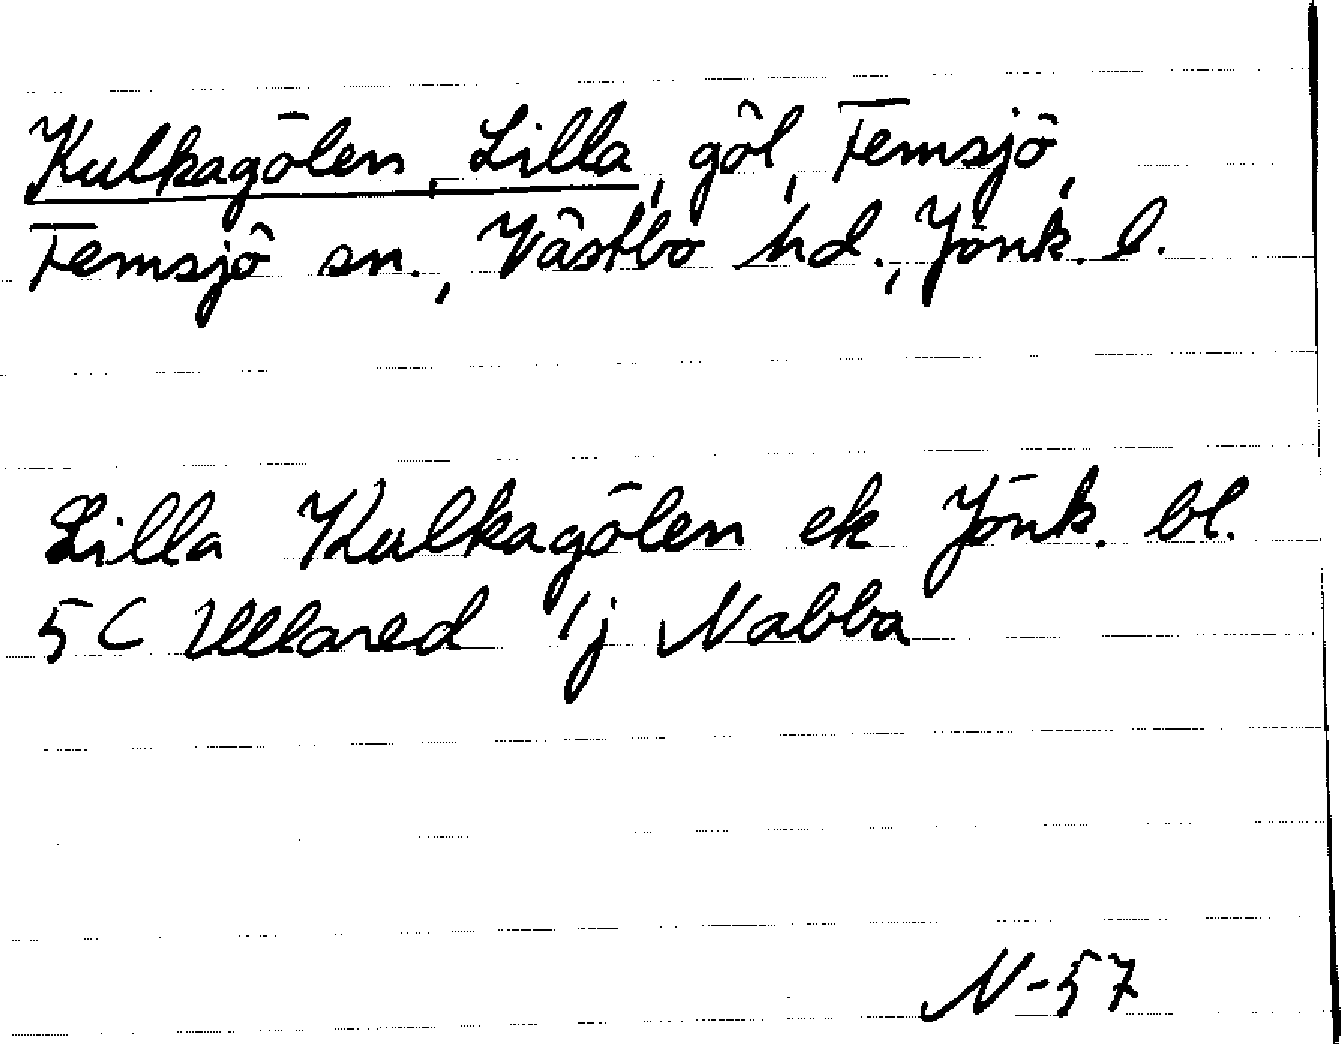 Kulkagölen, Lilla, göl, Femsjö,
Femsjö sn., Västbo hd., Jönk. l.
Lilla Kulkagölen ek Jönk. bl.
5 C Ullared 1j Nabba
N-57